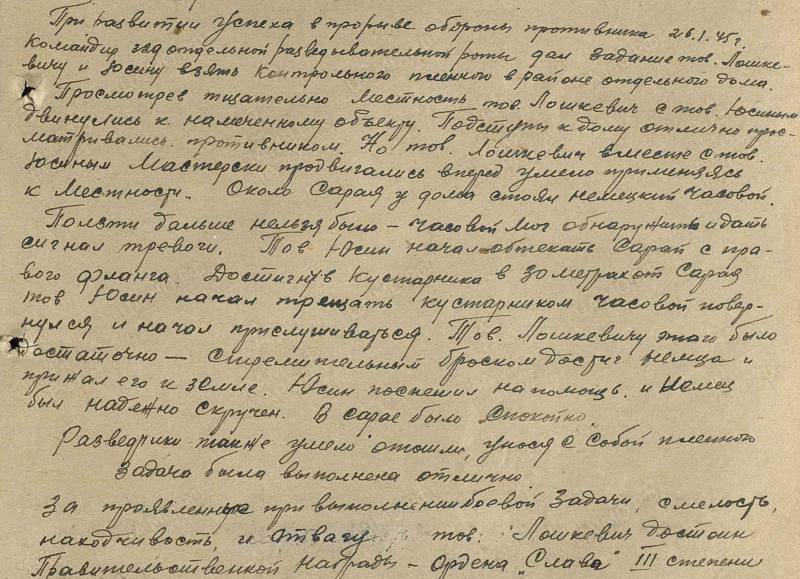 При развитии успеха в прорыве обороны противника 26.1.45г.
командир отдельной разведывательной роты дал задание тов. Лошке-
вичу и Юсину взять контрольного пленного в районе отдельного дома.
Просмотрев тщательно местность тов Лошкевич с тов. Юсиным
двинулись к намеченному объекту. Подступы к дому отлично прос-
матривались противником. Но тов. Лошкевич вместе с тов.
Юсиным мастерски продвигались вперед умело применяясь
к местности. Около сарая у дома стоял немецкий часовой.
Ползти дальше нельзя было – часовой мог обнаружить и дать
сигнал тревоги. Тов Юсин начал обтекать сарай с пра-
вого фланга. Достигнув кустарника в 30 метрах от сарая
тов Юсин начал трещать кустарником часовой повер-
нулся и начал прислушиваться. Тов. Лошкевичу этого было
достаточно – стремительным броском достиг немца и
прижал его к земле. Юсин поспешил на помощь. и немец
был надежно скручен. В сарае было спокойно
Разведчики также умело отошли, унося с собой пленного
Задача была выполнена отлично.
За проявленную при выполнении боевой задачи, смелость,
находчивость и отвагу тов. Лошкевич достоин
Правительственной награды – Ордена „Слава" III степени